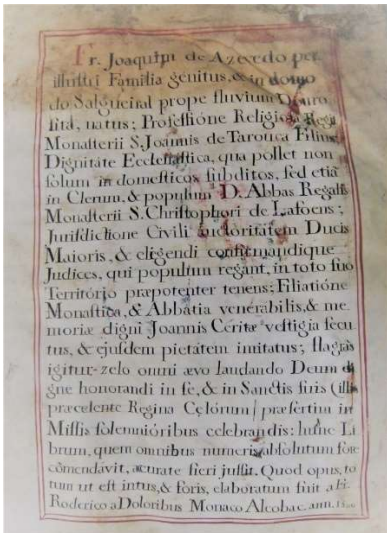 Fr. Joaquim de Azevedo per
illustri Familia genitus, & in domo
do Salgueiral prope fluvium Douro
sita, natus; Professióne Religiosa Regii
Monasterii S. Joannis de Tarouca Filius,
Dignitate Ecclesiastica, qua pollet non
solum in domesticos subditos, sed etiã
in Clerum, & populum D. Abbas Regalis
Monasterii S. Christophori de Lafoens;
Jurisdictione Civili auctoritatem Ducis
Maioris, & eligendi confirmandique
Judices, qui populum regant, in toto suo
Território præpotenter tenens; Filiatióne
Monastica, & Abbatia venerabilis, & me
moriæ digni Joannis Ceritæ vestigia secu
tus, & ejusdem pietatem imitatus; flagrãs
igitur zelo omni ævo laudando Deum di
gne honorandi in se, & in Sanctis suis (illis
præcelente Regina Cęlórum) præsertim in
Missis solemnióribus celebrandis: hunc Li
brum, quem omnibus numeris absolutum fore
cõmendavit, acurate fieri jussit. Quod opus, to
tum ut est intus, & foris, elaboratum fuit a Fr.
Roderico a Doloribus Monaco Alcobac. ann.